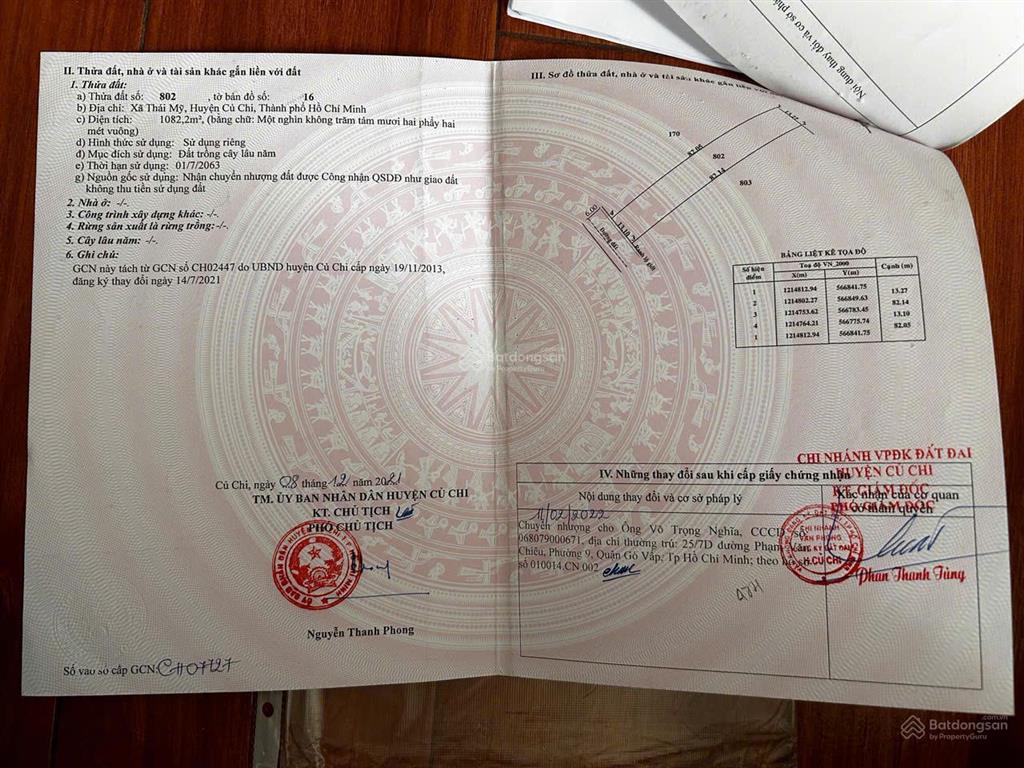 II. Thửa đất, nhà ở và tài sản khác gắn liền với đất
1. Thửa đất:
a) Thửa đất số: 802 , tờ bản đồ số: 16
b) Địa chỉ: Xã Thái Mỹ, Huyện Củ Chi, Thành phố Hồ Chí Minh
c) Diện tích: 1082,2m², (bằng chữ: Một nghìn không trăm tám mươi hai phẩy hai
mét vuông)
d) Hình thức sử dụng: Sử dụng riêng
đ) Mục đích sử dụng: Đất trồng cây lâu năm
e) Thời hạn sử dụng: 01/7/2063
g) Nguồn gốc sử dụng: Nhận chuyển nhượng đất được Công nhận QSDĐ như giao đất
không thu tiền sử dụng đất
2. Nhà ở: -/-.
3. Công trình xây dựng khác: -/-.
4. Rừng sản xuất là rừng trồng: -/-.
5. Cây lâu năm: -/-.
6. Ghi chú:
GCN này tách từ GCN số CH02447 do UBND huyện Củ Chi cấp ngày 19/11/2013,
đăng ký thay đổi ngày 14/7/2021
Củ Chi, ngày 08 tháng 12 năm 2021
TM. ỦY BAN NHÂN DÂN HUYỆN CỦ CHI
KT. CHỦ TỊCH
PHÓ CHỦ TỊCH
Nguyễn Thanh Phong
Số vào sổ cấp GCN: CH07727
III. Sơ đồ thửa đất, nhà ở và tài sản khác gắn liền với
Nội dung thay đổi và cơ sở
170
82.05
802
82.14
803
13.27
6.00
13.10
Đường đất
Ranh lộ giới
BẢNG LIỆT KÊ TỌA ĐỘ
Số hiệu điểm
Toạ độ VN_2000
Cạnh (m)
X(m) Y(m)
1 1214812.94 566841.75
13.27
2 1214802.27 566849.63
82.14
3 1214753.62 566783.45
13.10
4 1214764.21 566775.74
82.05
1 1214812.94 566841.75
IV. Những thay đổi sau khi cấp giấy chứng nhận
Nội dung thay đổi và cơ sở pháp lý
Xác nhận của cơ quan
có thẩm quyền
CHI NHÁNH VPĐK ĐẤT ĐAI
HUYỆN CỦ CHI
KT. GIÁM ĐỐC
PHÓ GIÁM ĐỐC
11/02/2022
Chuyển nhượng cho Ông Võ Trọng Nghĩa, CCCD số
068079000671, địa chỉ thường trú: 25/7D đường Phạm Văn
Chiêu, Phường 9, Quận Gò Vấp, Tp Hồ Chí Minh; theo hồ sơ
số 010014.CN.002
CHI NHÁNH
VĂN PHÒNG
ĐĂNG KÝ ĐẤT ĐAI
H.CỦ CHI
Phan Thanh Tùng
Batdongsan
by PropertyGuru
Batdongsan
.com.vn
by PropertyGuru